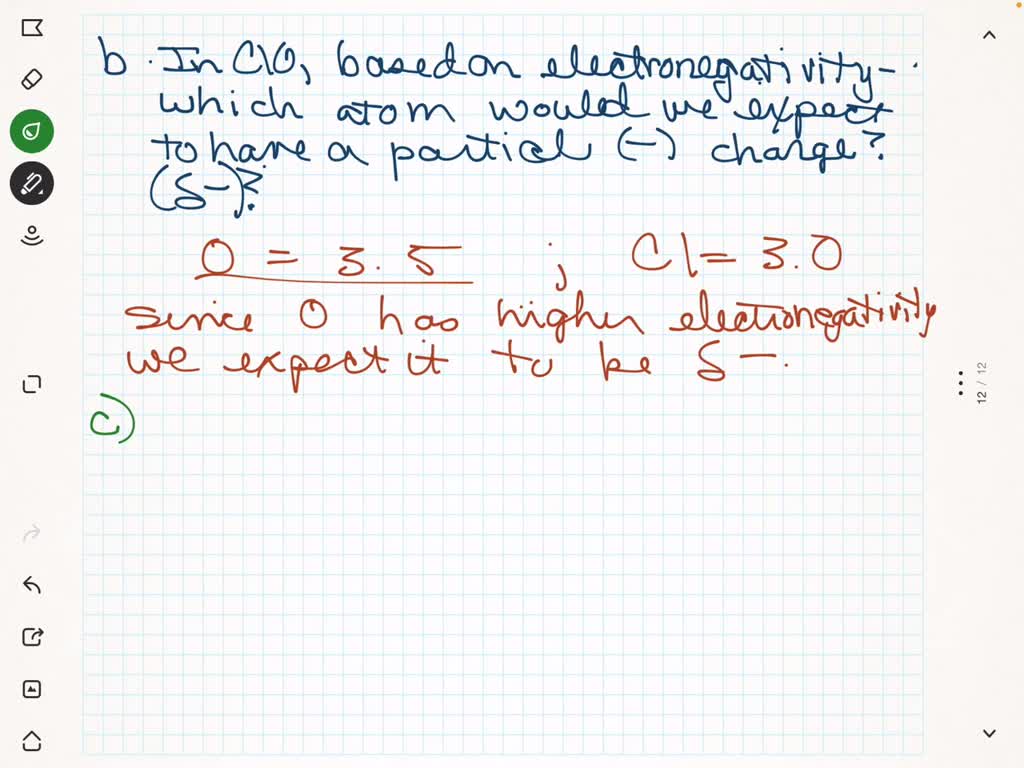 b. In ClO, based on electronegativity-.
which atom would we expect
to have a partial (-) charge?
(δ-)?
O = 3.5 ; Cl = 3.0
since O has higher electronegativity
we expect it to be δ-.
c)
12 / 12